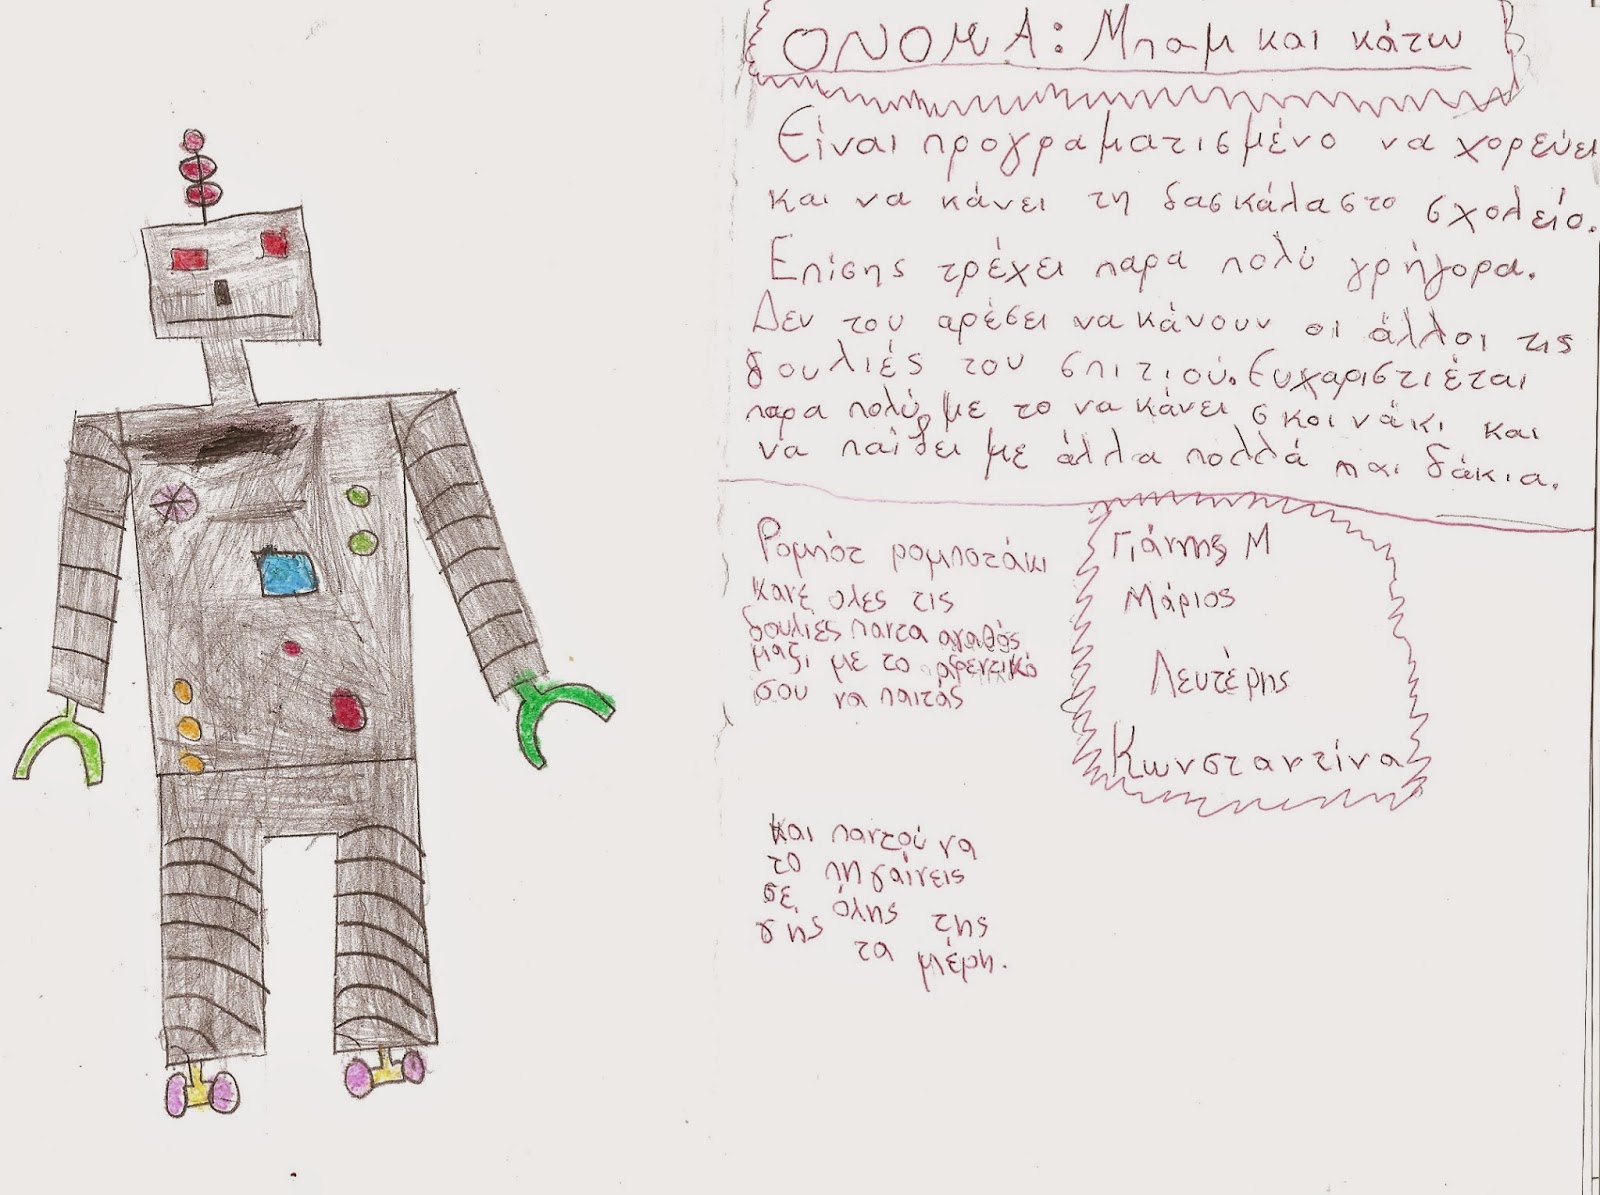 ΟΝΟΜΑ: Μπαμ και κάτω
Είναι προγραματισμένο να χορεύει
και να κάνει τη δασκάλα στο σχολείο.
Επίσης τρέχει παρα πολύ γρήγορα.
Δεν του αρέσει να κάνουν οι άλλοι τις
δουλιές του σπιτιού. Ευχαριστιέται
παρα πολύ με το να κάνει σκοινάκι και
να παίζει με άλλα πολλά παιδάκια.
Ρομπότ ρομποτάκι
κανε ολες τις
δουλιες παντα αγαθός
μαζι με το αφεντικό
σου να πατάς
και παντού να
το πηγαίνεις
σε όλης της
γής τα μέρη.
Γιάννης Μ
Μάριος
Λευτέρης
Κωνσταντίνα